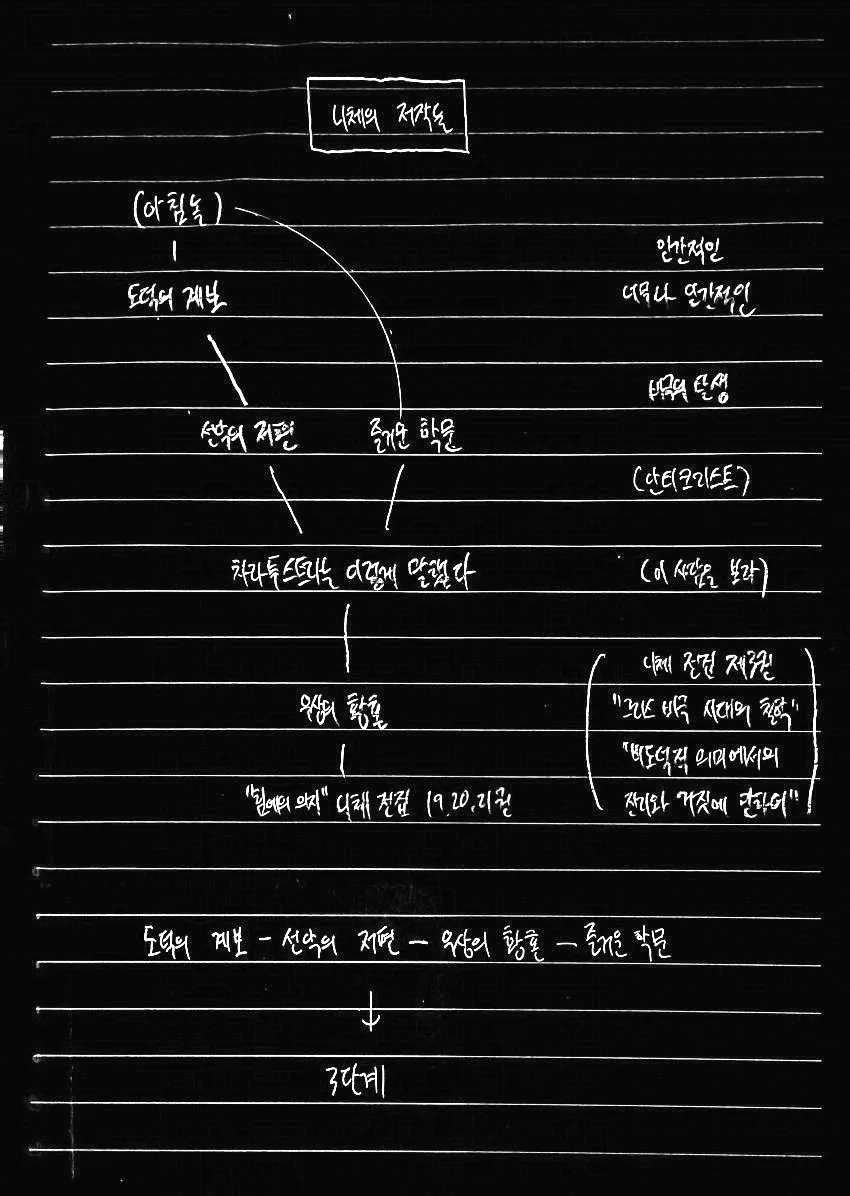 니체의 저작들
(아침놀)
도덕의 계보
선악의 저편
즐거운 학문
차라투스트라는 이렇게 말했다
우상의 황혼
"힘에의 의지" 니체 전집 19.20.21권
인간적인
너무나 인간적인
비극의 탄생
(안티크리스트)
(이 사람을 보라)
니체 전집 제3권
"그리스 비극 시대의 철학"
"비도덕적 의미에서의
진리와 거짓에 관하여"
도덕의 계보 - 선악의 저편 - 우상의 황혼 - 즐거운 학문
↓
3단계